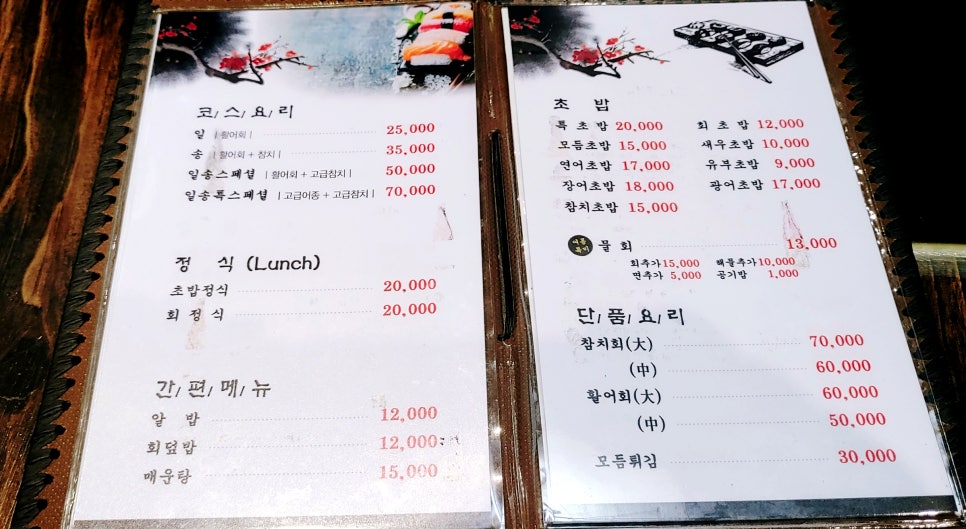 코스요리
일 |활어회| 25,000
송 |활어회 + 참치| 35,000
일송스페셜 |활어회 + 고급참치| 50,000
일송특스페셜 |고급어종 + 고급참치| 70,000
정 식 (Lunch)
초밥정식 20,000
회 정 식 20,000
간/편/메/뉴
알 밥 12,000
회덮밥 12,000
매운탕 15,000
초 밥
특 초 밥 20,000 회 초 밥 12,000
모듬초밥 15,000 새우초밥 10,000
연어초밥 17,000 유부초밥 9,000
장어초밥 18,000 광어초밥 17,000
참치초밥 15,000
여름 물 회 13,000
회추가 15,000 해물추가 10,000
면추가 5,000 공기밥 1,000
단/품/요/리
참치회(大) 70,000
(中) 60,000
활어회(大) 60,000
(中) 50,000
모듬튀김 30,000